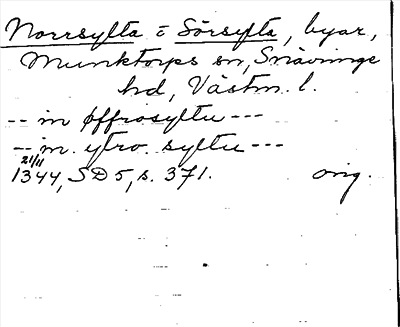 Norrsylta o Sörsylta, byar,
Munktorps sn, Snävringe
hd, Västm. l.
-- in øffrosyltu ---
-- in. ytro. syltu ---
21/11
1344, SD 5, s. 371. orig.